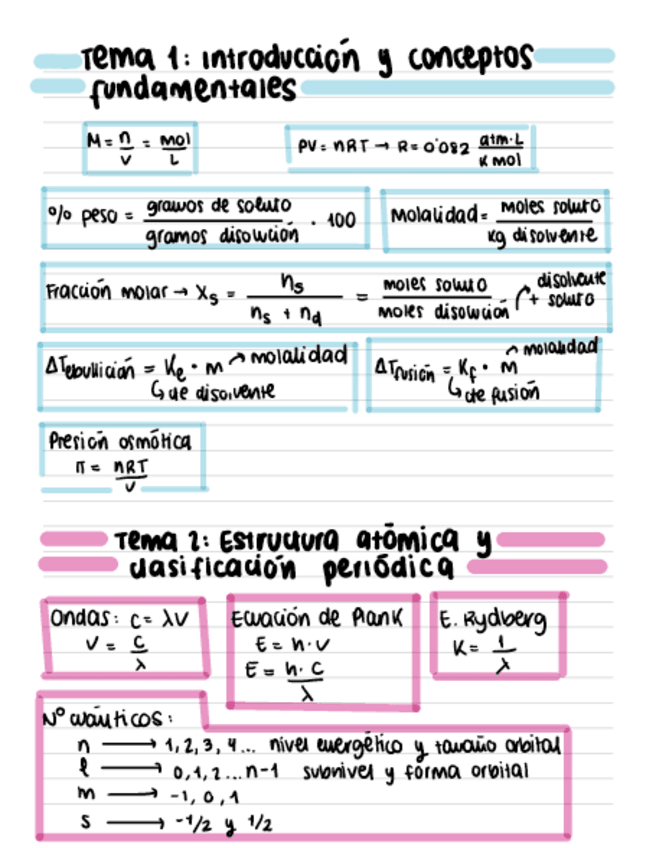 Tema 1: introducción y conceptos
fundamentales
M = n/V = mol/L
PV = nRT → R = 0'082 atm·L / K mol
% peso = gramos de soluto / gramos disolución · 100
Molalidad = moles soluto / kg disolvente
Fracción molar → Xs = ns / ns + nd = moles soluto / moles disolución → disolvente + soluto
ΔTebullición = Ke · m → molalidad
↳ cte disolvente
ΔTfusión = Kf · m → molalidad
↳ cte fusión
Presión osmótica
π = nRT/V
Tema 2: Estructura atómica y
clasificación periódica
Ondas: c = λν
ν = c/λ
Ecuación de Plank
E = h·ν
E = h·c/λ
E. Rydberg
K = 1/λ
Nº cuánticos:
n → 1, 2, 3, 4... nivel energético y tamaño orbital
l → 0, 1, 2...n-1 subnivel y forma orbital
m → -1, 0, 1
s → -1/2 y 1/2